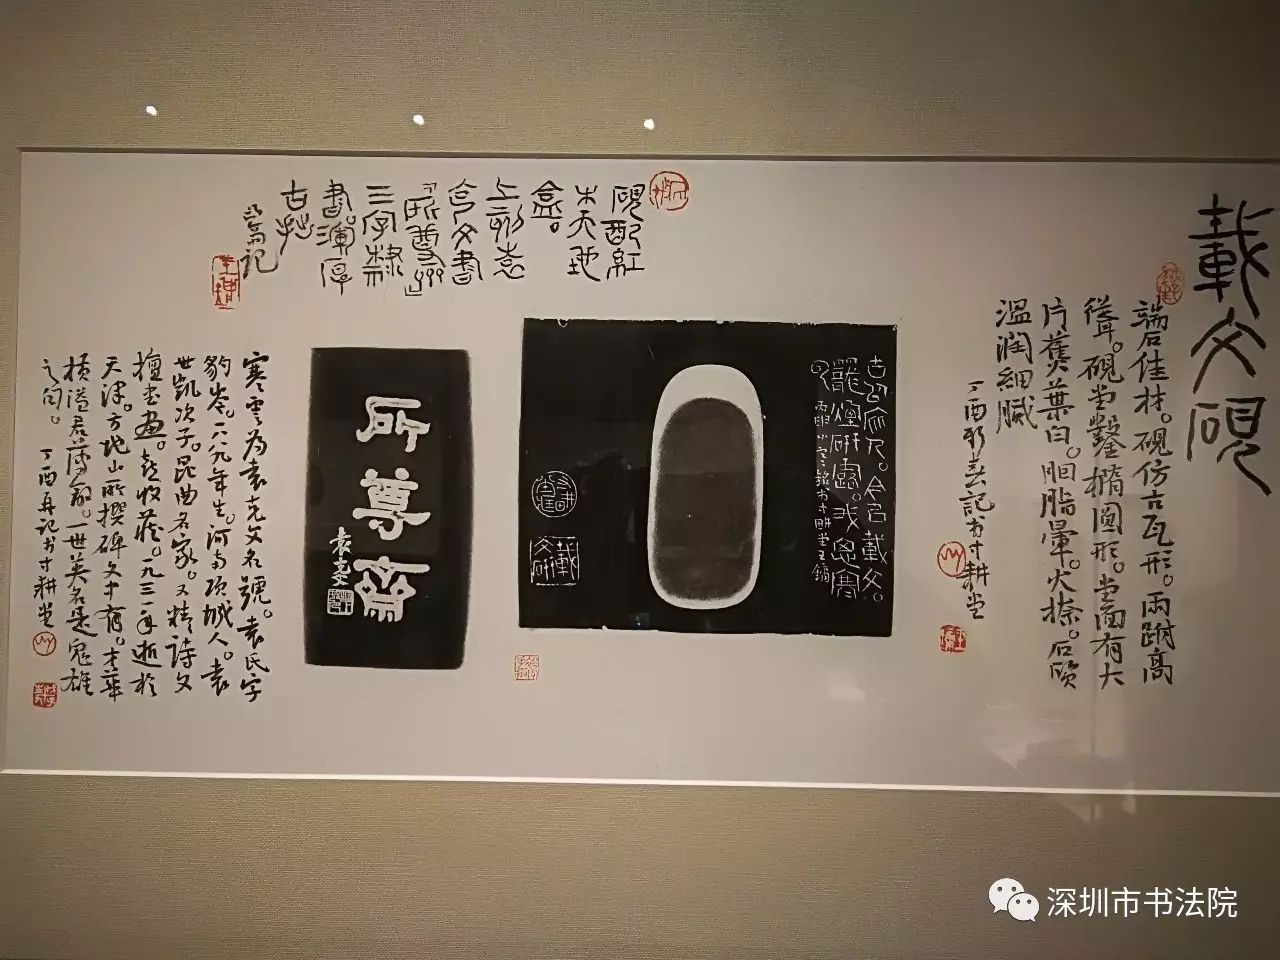 載文硯
端石佳材。硯仿古瓦形。兩跗高
聳。硯堂鑿橢圓形。堂面有大
片蕉葉白。胭脂暈。火捺。石質
溫潤細膩
丁酉
記於寸耕堂
硯配紅
木天地
盒。
上刻袁
克文書
「所尊齋」
三字隸
書。渾厚
古拙
又記
古
今名載文。
硯
寸耕堂
載文硯
所尊齋
袁克文
寒雲為袁克文名號。袁氏字
豹岑。一八九〇年生。河南項城人。袁
世凱次子。昆曲名家。又精詩文
擅書畫。喜收藏。一九三一年逝於
天津。方地山所撰碑文中有。才華
橫溢君薄命。一世英名是鬼雄
之句。丁酉再記於寸耕堂
深圳市书法院